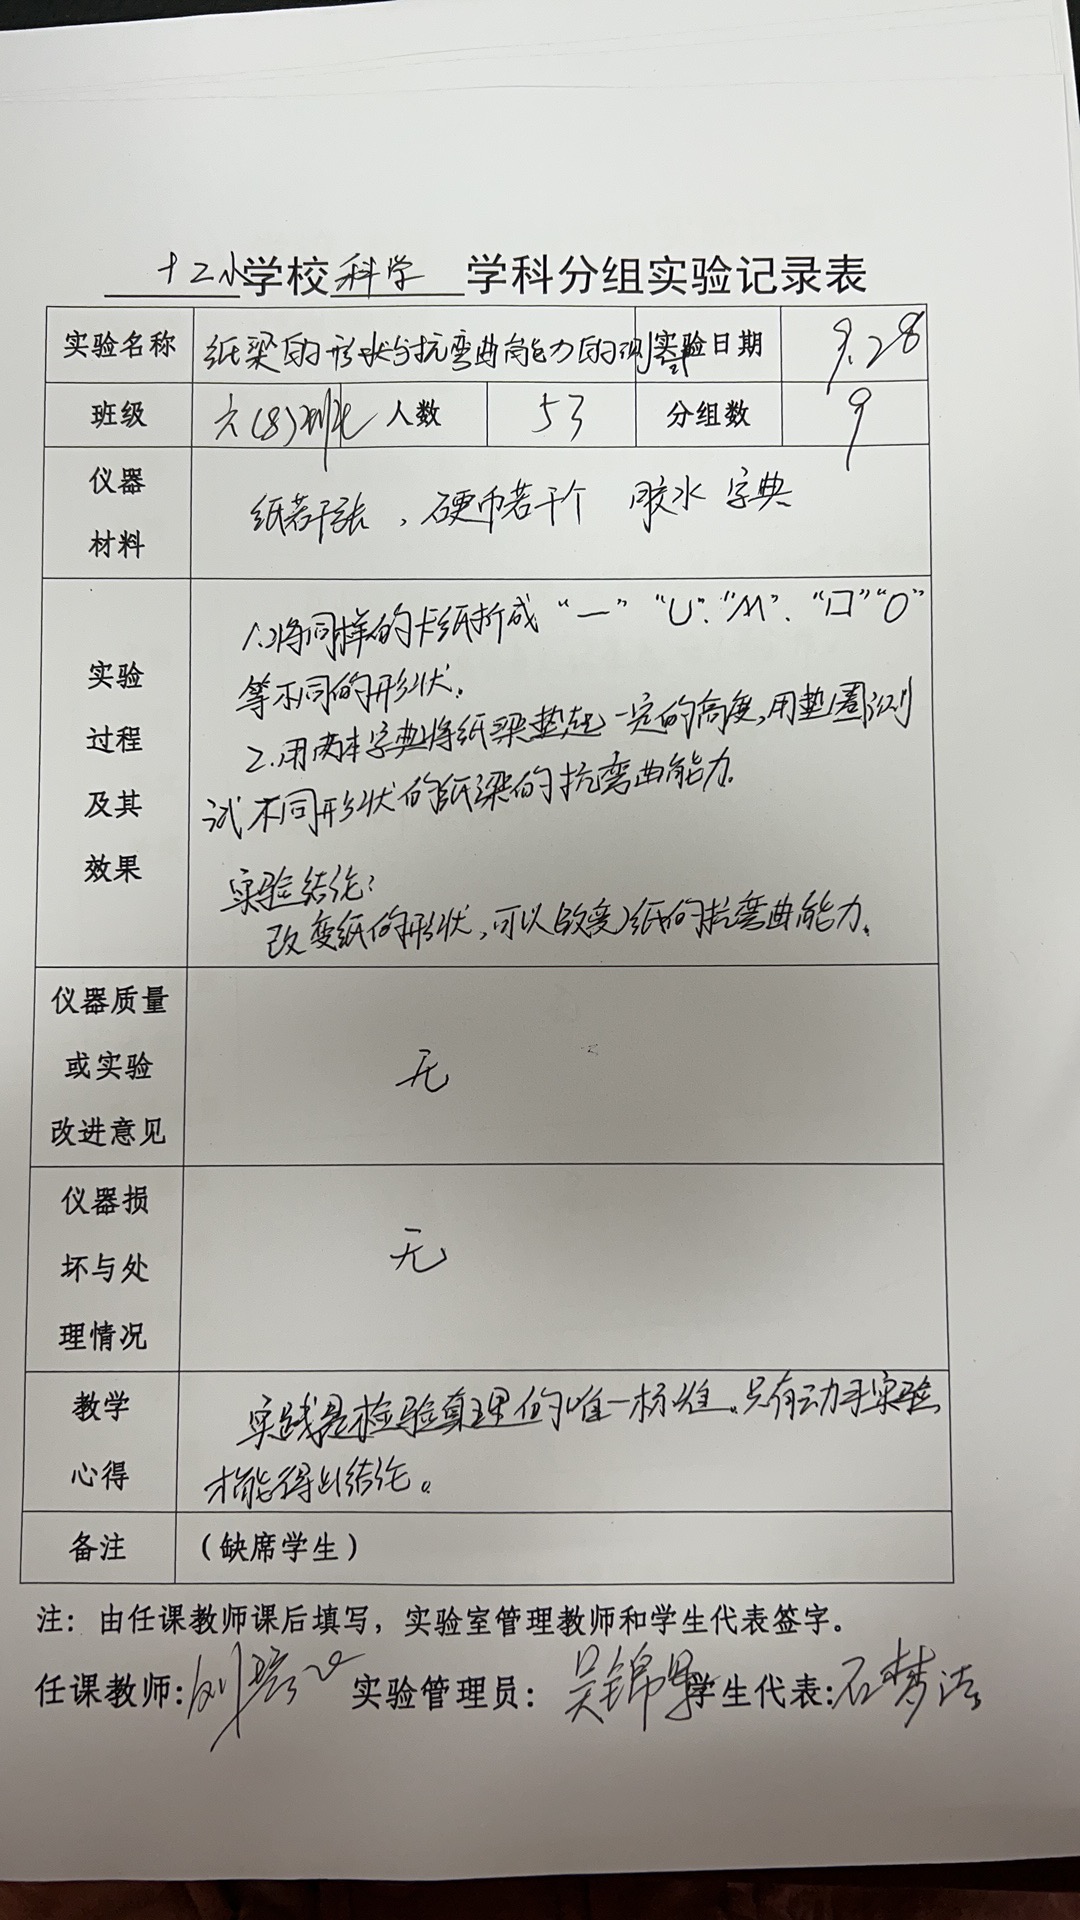 十二小学校科学 学科分组实验记录表
实验名称 纸梁的形状与抗弯曲能力的 实验日期 9.28
班级 六(8)班 人数 53 分组数 9
仪器
材料
纸若干张，硬币若干个 胶水 字典
实验
过程
及其
效果
1.将同样的卡纸折成“一”“U”.“M”.“口”“O”
等不同的形状.
2.用两本字典将纸梁垫起一定的高度,用垫圈测
试不同形状的纸梁的抗弯曲能力.
实验结论:
改变纸的形状,可以改变纸的抗弯曲能力.
仪器质量
或实验
改进意见
无
仪器损
坏与处
理情况
无
教学
心得
实践是检验真理的唯一标准.只有动手实验,
才能得出结论。
备注 （缺席学生）
注：由任课教师课后填写，实验室管理教师和学生代表签字。
任课教师:刘 实验管理员：吴锦 学生代表:石梦洁